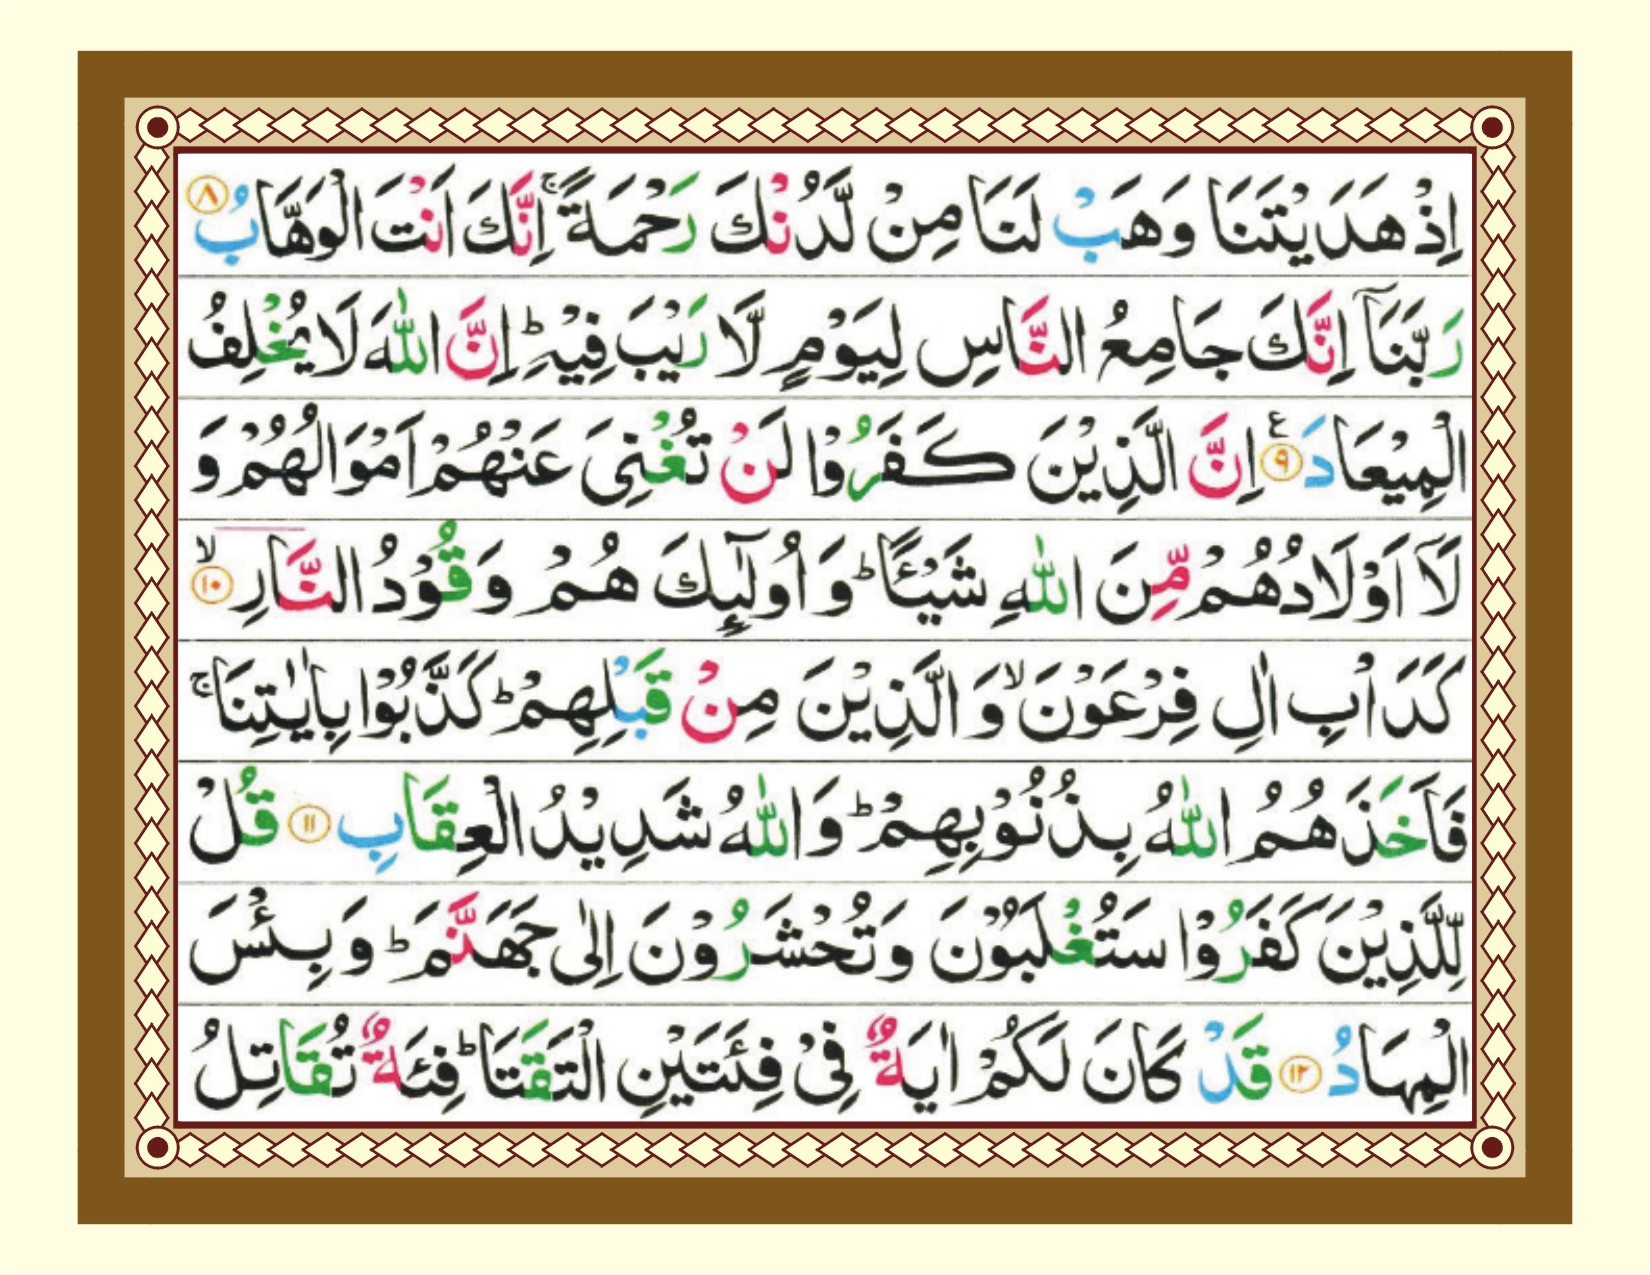 اِذْ هَدَيْتَنَا وَهَبْ لَنَا مِنْ لَّدُنْكَ رَحْمَةً ۚ اِنَّكَ اَنْتَ الْوَهَّابُ ۸
رَبَّنَاۤ اِنَّكَ جَامِعُ النَّاسِ لِيَوْمٍ لَّا رَيْبَ فِيْهِ ؕ اِنَّ اللّٰهَ لَا يُخْلِفُ
الْمِيْعَادَ ۹ ع اِنَّ الَّذِيْنَ كَفَرُوْا لَنْ تُغْنِىَ عَنْهُمْ اَمْوَالُهُمْ وَ
لَاۤ اَوْلَادُهُمْ مِّنَ اللّٰهِ شَيْـًٔا ؕ وَ اُولٰٓىِٕكَ هُمْ وَقُوْدُ النَّارِ ۙ ۱۰
كَدَاْبِ اٰلِ فِرْعَوْنَ ۙ وَ الَّذِيْنَ مِنْ قَبْلِهِمْ ؕ كَذَّبُوْا بِاٰيٰتِنَا ۚ
فَاَخَذَهُمُ اللّٰهُ بِذُنُوْبِهِمْ ؕ وَ اللّٰهُ شَدِيْدُ الْعِقَابِ ۱۱ قُلْ
لِّلَّذِيْنَ كَفَرُوْا سَتُغْلَبُوْنَ وَتُحْشَرُوْنَ اِلٰى جَهَنَّمَ ؕ وَ بِئْسَ
الْمِهَادُ ۱۲ قَدْ كَانَ لَكُمْ اٰيَةٌ فِىْ فِئَتَيْنِ الْتَقَتَا ؕ فِئَةٌ تُقَاتِلُ